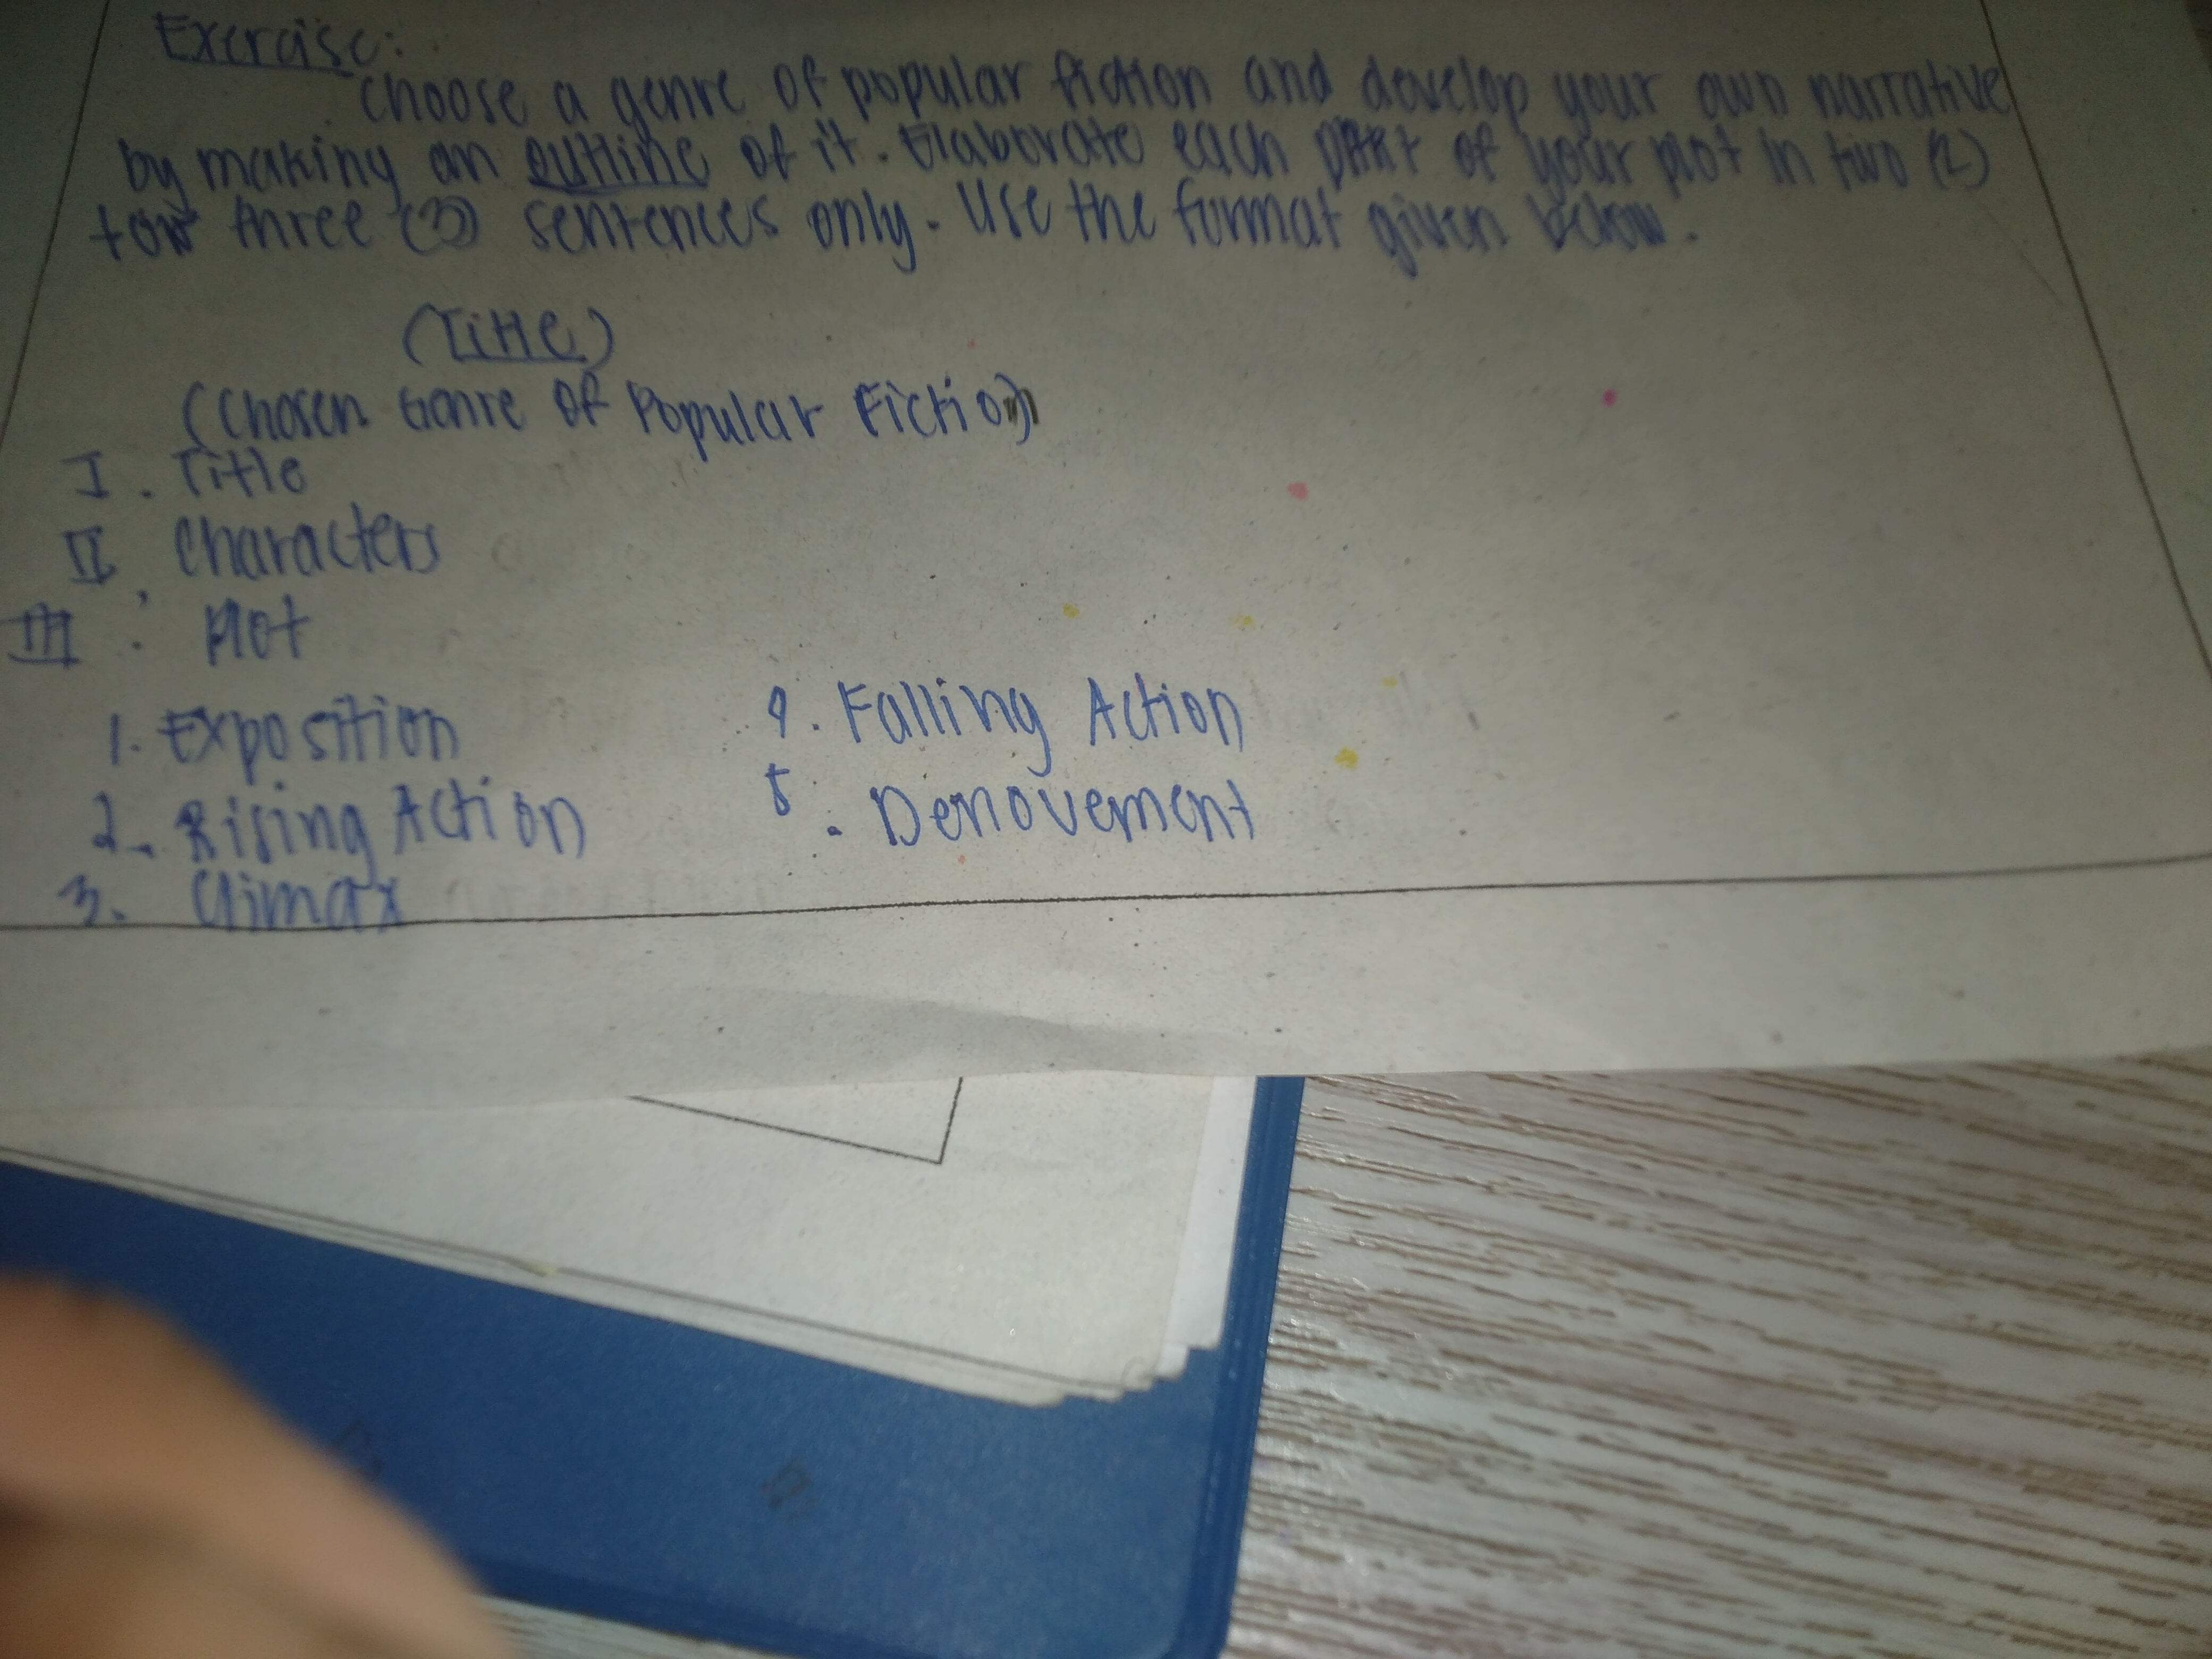 Exercise:
Choose a genre of popular fiction and develop your own narrative
by making an outline of it. Elaborate each part of your plot in two (2)
tow three (3) sentences only. Use the format given below.
(Title)
(Chosen Genre of Popular Fiction)
I. Title
II. Characters
III. Plot
1. Exposition
2. Rising Action
3. Climax
4. Falling Action
5. Denovement